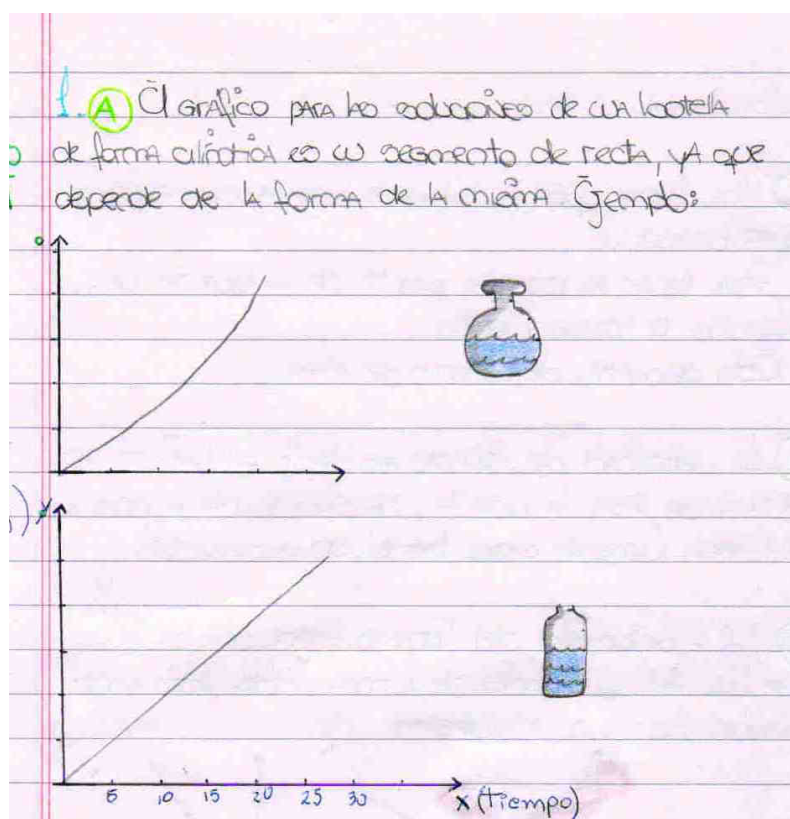 1. A El gráfico para las soluciones de una botella
de forma cilíndrica es un segmento de recta, ya que
depende de la forma de la misma Ejemplo:
y
5 10 15 20 25 30 x (tiempo)